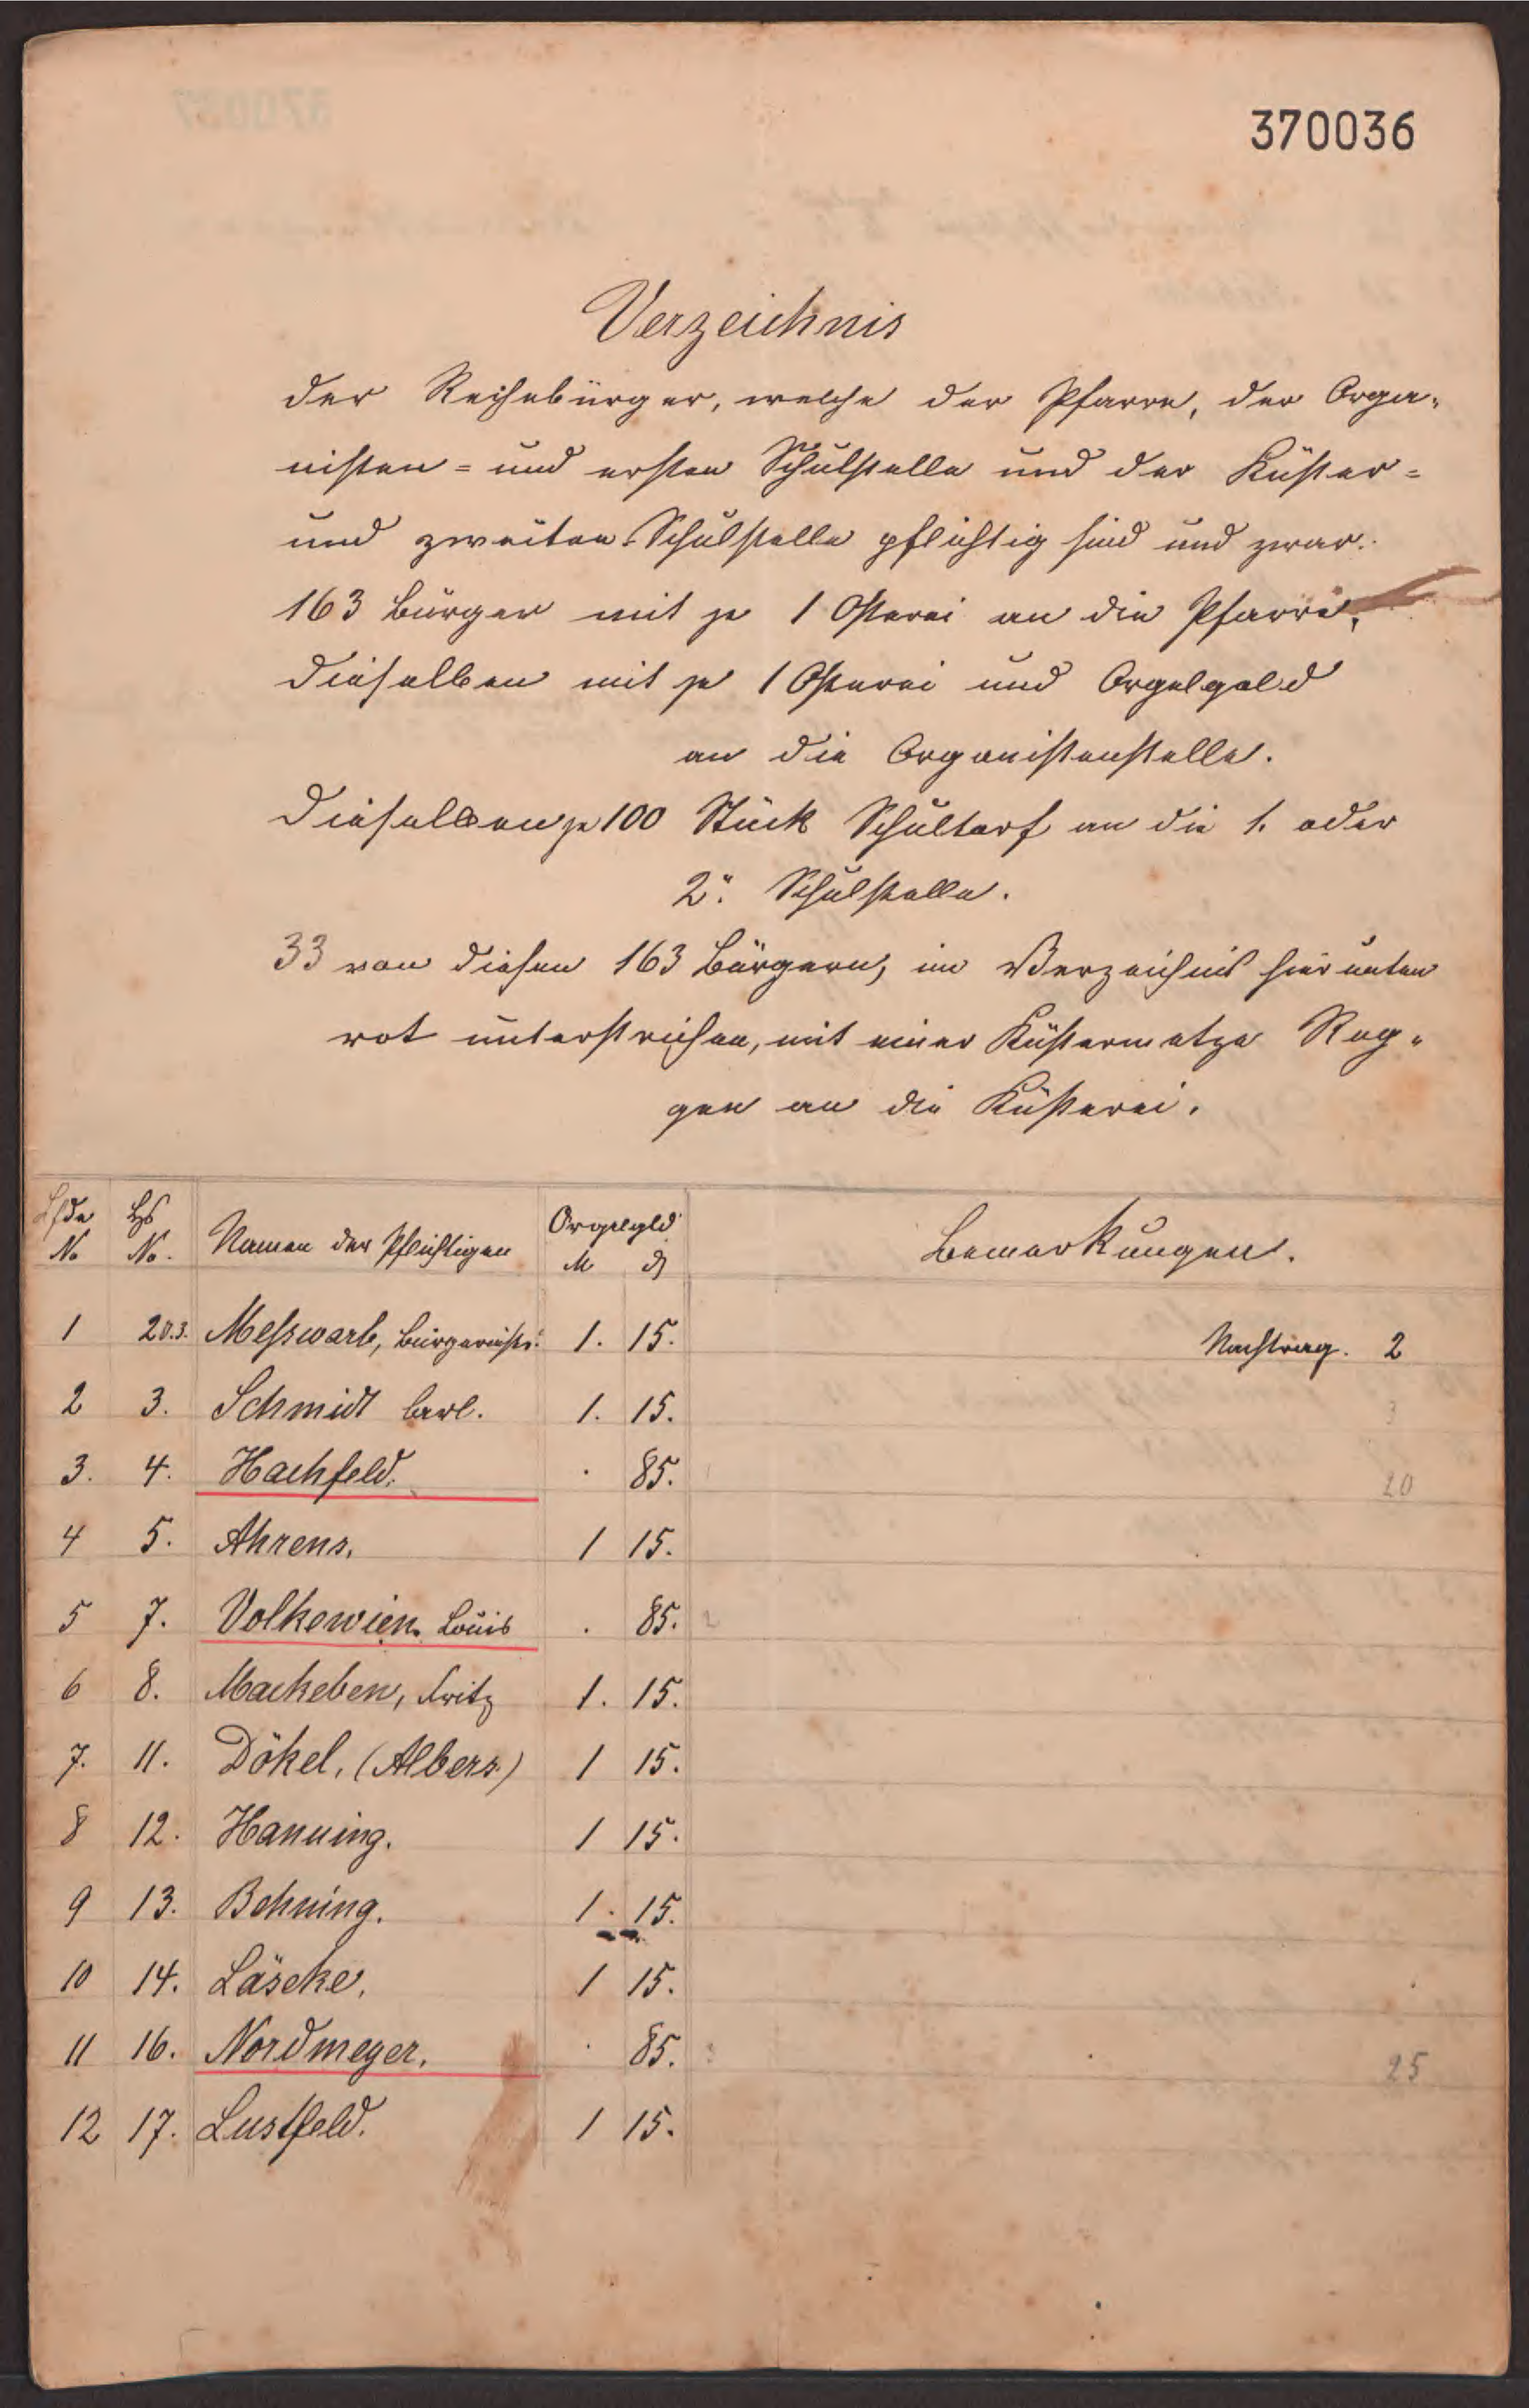 370036
Verzeichnis
der Reihebürger, welche der Pfarre, der Orga-
nisten- und ersten Schulstelle und der Küster-
und zweiten Schulstelle pflichtig sind und zwar:
163 Bürger mit je 1 Osterei an die Pfarre,
dieselben mit je 1 Osterei und Orgelgeld
an die Organistenstelle.
dieselben je 100 Stück Schultorf an die 1. oder
2. Schulstelle.
33 von diesen 163 Bürgern, im Verzeichnis hier unten
rot unterstrichen, mit einer Küstermetze Rog-
gen an die Küsterei.
Lfde No Hs No. Namen der Pflichtigen Orgelgld M ₰ Bemerkungen.
1 20.3. Meßwarb, 1. 15. Nachtrag. 2
2 3. Schmidt Carl. 1. 15. 3
3. 4. Hachfeld. . 85. 20
4 5. Ahrens. 1 15.
5 7. Volkewien. Louis . 85.
6 8. Mackeben, Fritz 1. 15.
7. 11. Dökel, (Albers.) 1 15.
8 12. Hanning. 1 15.
9 13. Behning. 1. 15.
10 14. Läseke. 1 15.
11 16. Nordmeyer. . 85. 25
12 17. Lustfeld. 1 15.